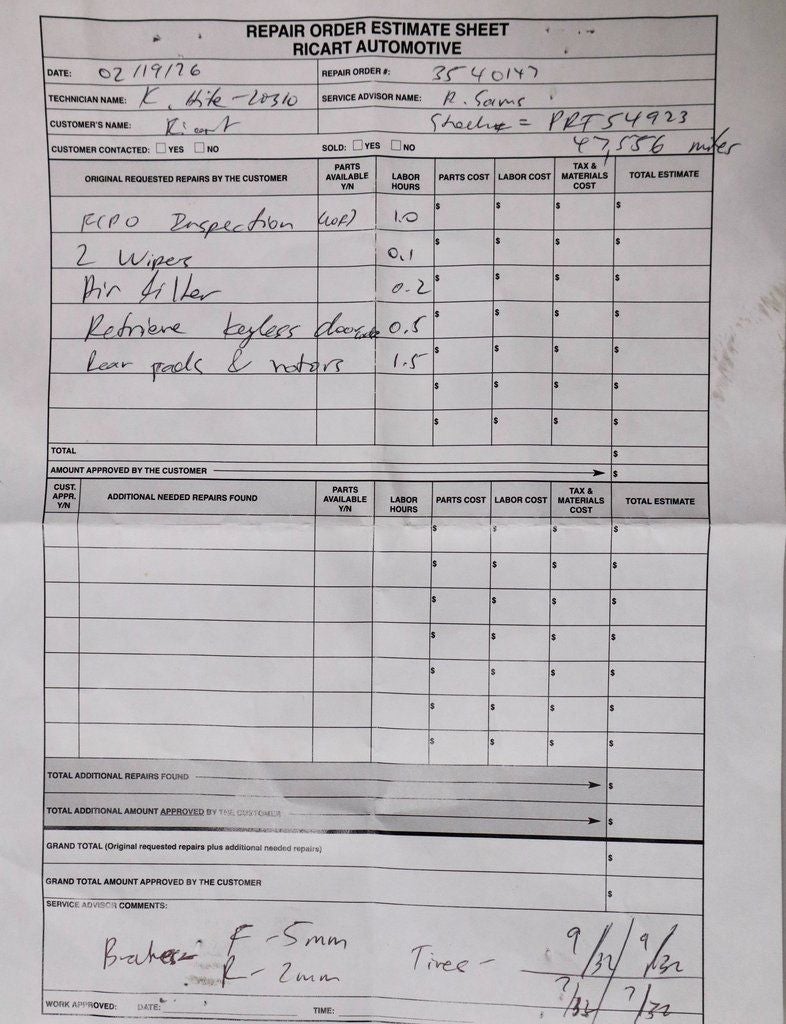 REPAIR ORDER ESTIMATE SHEET
RICART AUTOMOTIVE
DATE: 02/19/26 REPAIR ORDER #: 3540147
TECHNICIAN NAME: K. Hite - 20310 SERVICE ADVISOR NAME: R. Sams
CUSTOMER'S NAME: Ricart Stock# = PRT54923
CUSTOMER CONTACTED: YES NO SOLD: YES NO 47,556 miles
ORIGINAL REQUESTED REPAIRS BY THE CUSTOMER PARTS AVAILABLE Y/N LABOR HOURS PARTS COST LABOR COST TAX & MATERIALS COST TOTAL ESTIMATE
Inspection (LOF) 1.0 $ $ $ $
2 Wipers 0.1 $ $ $ $
Air filter 0.2 $ $ $ $
Retrieve keyless door code 0.5 $ $ $ $
Rear pads & rotors 1.5 $ $ $ $
$ $ $ $
$ $ $ $
TOTAL $
AMOUNT APPROVED BY THE CUSTOMER $
CUST. APPR. Y/N ADDITIONAL NEEDED REPAIRS FOUND PARTS AVAILABLE Y/N LABOR HOURS PARTS COST LABOR COST TAX & MATERIALS COST TOTAL ESTIMATE
$ $ $ $
$ $ $ $
$ $ $ $
$ $ $ $
$ $ $ $
$ $ $ $
$ $ $ $
TOTAL ADDITIONAL REPAIRS FOUND $
TOTAL ADDITIONAL AMOUNT APPROVED BY THE CUSTOMER $
GRAND TOTAL (Original requested repairs plus additional needed repairs) $
GRAND TOTAL AMOUNT APPROVED BY THE CUSTOMER $
SERVICE ADVISOR COMMENTS:
Brakes - F - 5mm Tires - 9/32 9/32
R - 2mm 7/32 7/32
WORK APPROVED: DATE: TIME: